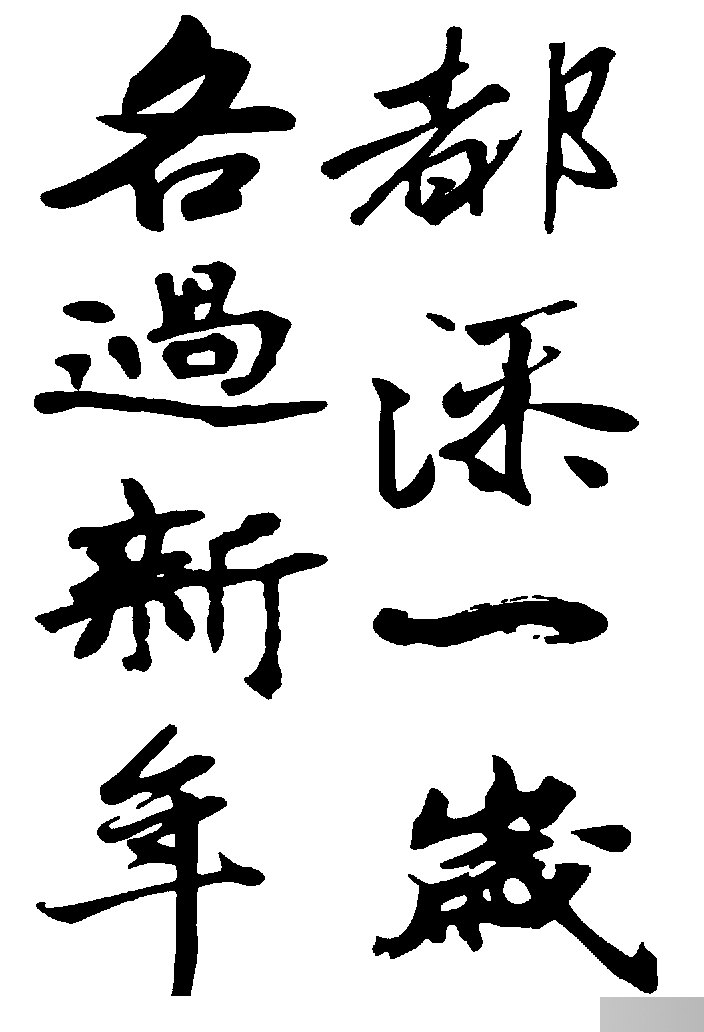 都添一歲
各過新年